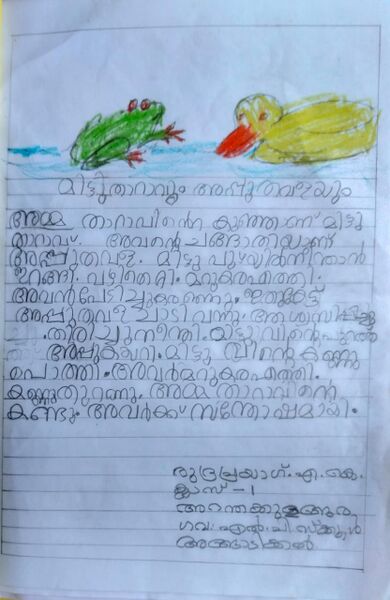 മിട്ടുതാറാവും അപ്പുതവളയും
അമ്മ താറാവിൻ്റെ കുഞ്ഞാണ് മിട്ടു
താറാവ്. അവൻ്റെ ചങ്ങാതിയാണ്
അപ്പുതവള. മിട്ടു പുഴയിൽനീന്താൻ
ഇറങ്ങി. വഴിതെറ്റി. മറുകരഎത്തി.
അവൻപേടിച്ചുകരഞ്ഞു. ഇതുകേട്ട്
അപ്പുതവള ചാടി വന്നു. ആശ്വസിപ്പിച്ചു
. തിരിച്ചുനീന്തി. മിട്ടുവിൻ്റെപുറത്ത്
അപ്പുകയറി. മിട്ടു കണ്ണു
പൊത്തി. അവർമറുകരഎത്തി.
കണ്ണുതുറന്നു. അമ്മ താറാവിനെ
കണ്ടു. അവർക്ക് സന്തോഷമായി.
രുദ്രപ്രയാഗ്.എ.കെ.
ക്ലാസ് - 1
അറന്തക്കുളങ്ങര
ഗവ: എൽ.പി.സ്ക്കൂൾ
അങ്ങാടിക്കൽ